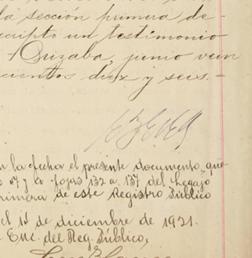 la sección primera de-
cripto un testimonio
Orizaba, junio vein
cientos diez y seis.-
n la fecha el presente documento, que
67 y a fojas 132 a 137 del Legajo
primera de este Registro Público
el 15 de diciembre de 1921.
Enc. del Reg. Público,